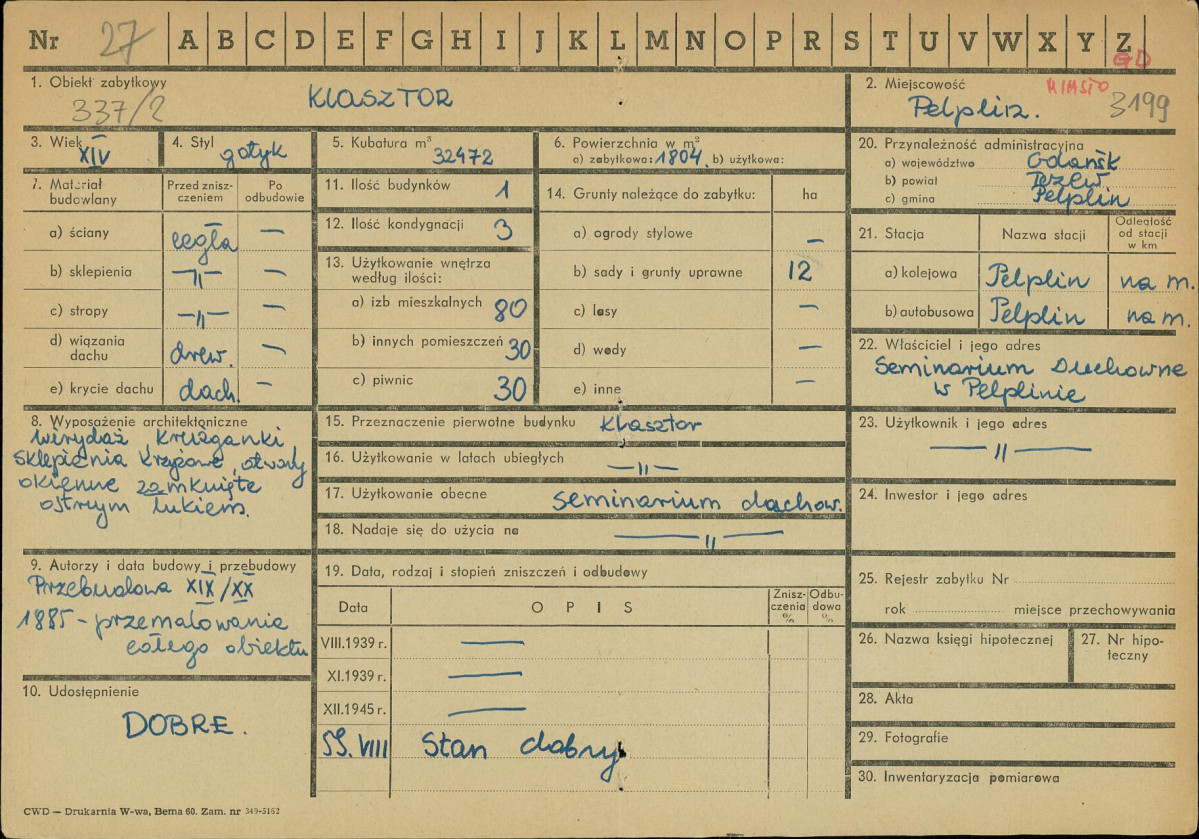 Nr 27 A B C D E F G H I J K L M N O P R S T U V W X Y Z
GD
1. Obiekt zabytkowy
337/2
KLASZTOR
2. Miejscowość
MIASTO
Pelplin.
3199
3. Wiek
XIV
4. Styl
gotyk
5. Kubatura m³
32472
6. Powierzchnia w m²
a) zabytkowa: 1804, b) użytkowa:
20. Przynależność administracyjna
a) województwo Gdańsk
b) powiat Tczew.
c) gmina Pelplin
7. Materiał budowlany
Przed zniszczeniem
Po odbudowie
a) ściany cegła —
b) sklepienia —„— —
c) stropy —„— —
d) wiązania dachu drew. —
e) krycie dachu dach. —
11. Ilość budynków 1
12. Ilość kondygnacji 3
13. Użytkowanie wnętrza
według ilości:
a) izb mieszkalnych 80
b) innych pomieszczeń 30
c) piwnic 30
14. Grunty należące do zabytku: ha
a) ogrody stylowe —
b) sady i grunty uprawne 12
c) lasy —
d) wody —
e) inne —
21. Stacja
Nazwa stacji
Odległość od stacji w km
a) kolejowa Pelplin na m.
b) autobusowa Pelplin na m.
22. Właściciel i jego adres
Seminarium Duchowne
w Pelplinie
8. Wyposażenie architektoniczne
wirydaż, krużganki,
sklepienia krzyżowe, otwory
okienne zamknięte
ostrym łukiem.
15. Przeznaczenie pierwotne budynku Klasztor
16. Użytkowanie w latach ubiegłych —„—
17. Użytkowanie obecne seminarium duchow.
18. Nadaje się do użycia na —„—
23. Użytkownik i jego adres
—„—
24. Inwestor i jego adres
9. Autorzy i data budowy i przebudowy
Przebudowa XIX/XX
1885 - przemalowania
całego obiektu
19. Data, rodzaj i stopień zniszczeń i odbudowy
Data
OPIS
Zniszczenia %
Odbudowa %
VIII.1939 r. —
XI.1939 r. —
XII.1945 r. —
59. VIII Stan dobry
25. Rejestr zabytku Nr
rok miejsce przechowywania
26. Nazwa księgi hipotecznej
27. Nr hipoteczny
28. Akta
29. Fotografie
30. Inwentaryzacja pomiarowa
10. Udostępnienie
DOBRE.
CWD — Drukarnia W-wa, Bema 60. Zam. nr 349-5162